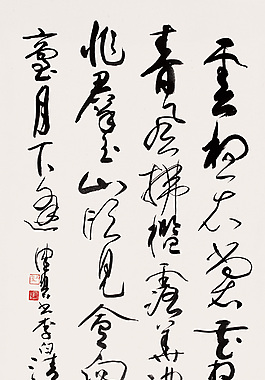 雲想衣裳花想
春風拂檻露華濃
非群玉山頭見會向
臺月下逢
書李白清